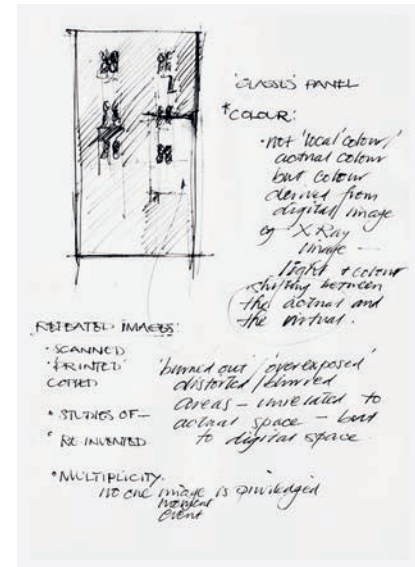 'GLASSES' PANEL
* COLOUR:
• not 'local' colour/
actual colour
but colour
derived from
digital image
eg X.Ray
image —
light + colour
shifting between
the actual and
the virtual.
REPEATED IMAGES:
• SCANNED
'PRINTED'
COPIED
• STUDIES OF —
• RE-INVENTED
'burned out'/'overexposed'
distorted/blurred
areas – unrelated to
actual space – but
to digital space.
• MULTIPLICITY.
no one image is privileged
moment
event